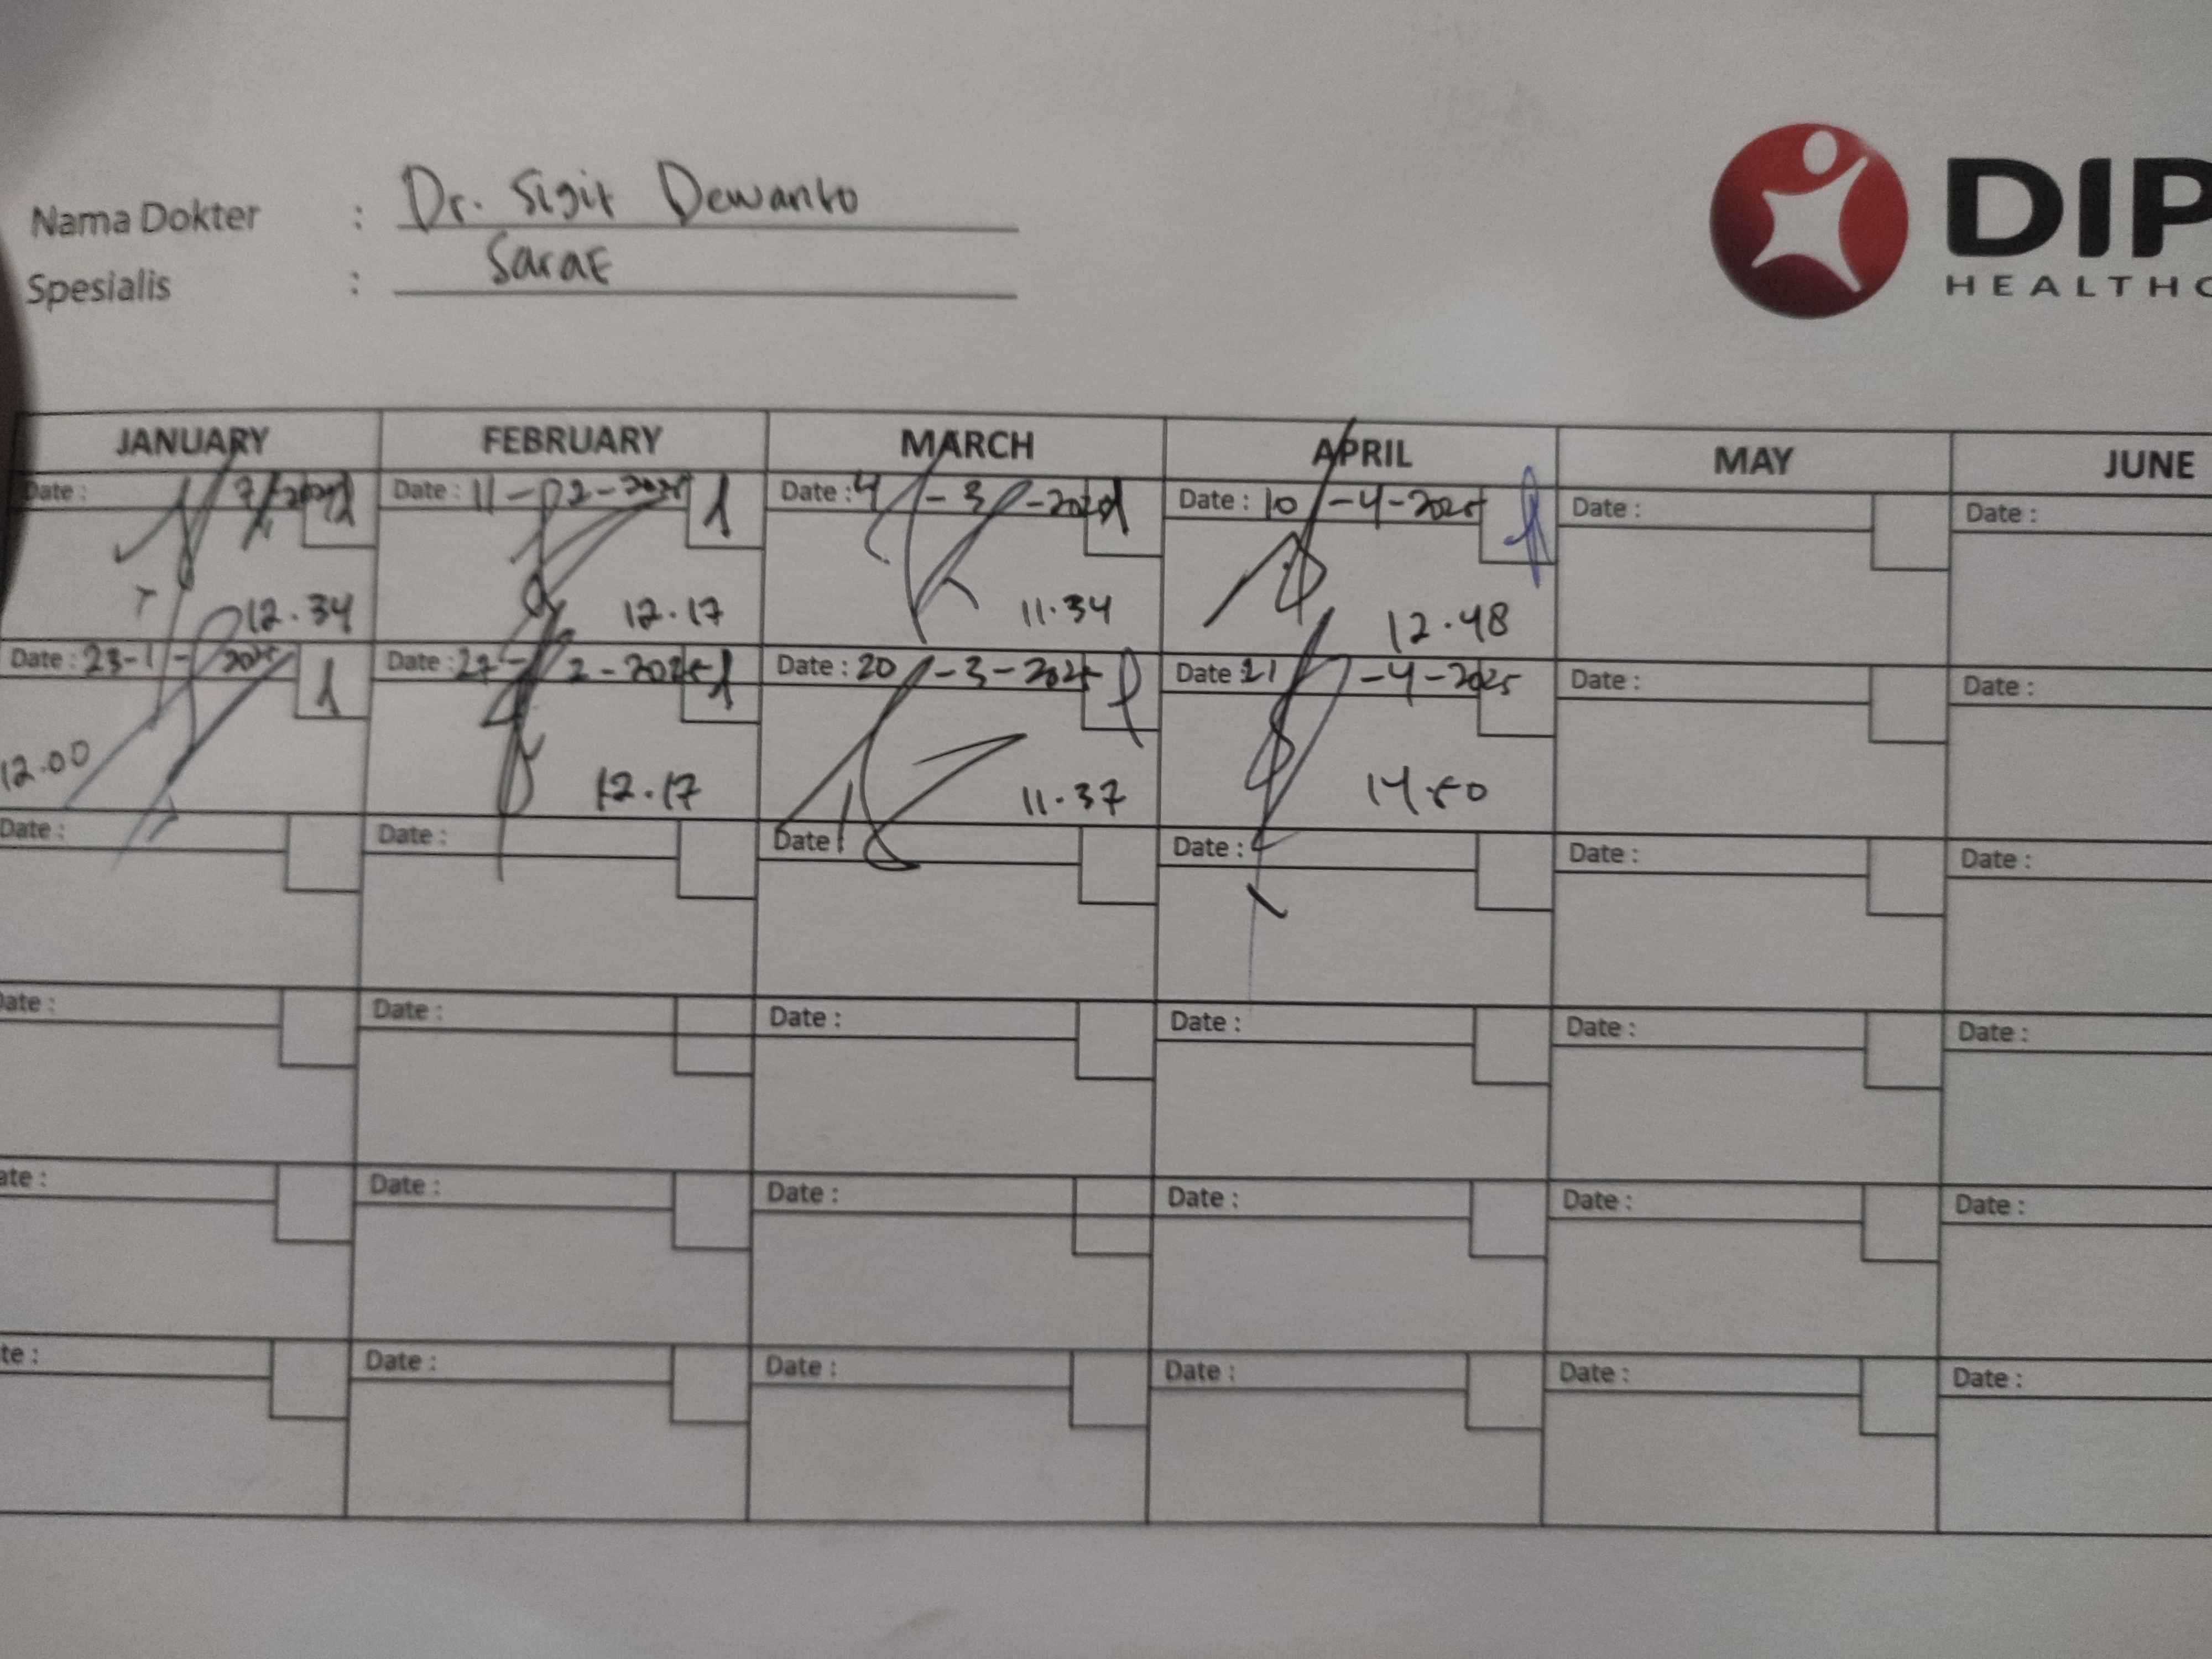 Nama Dokter : Dr. Sigit Dewanto
Spesialis : Saraf
DIP
HEALTHC
JANUARY FEBRUARY MARCH APRIL MAY JUNE
Date : Date : 11-02-2025 Date : 4-3-2025 Date : 10-4-2025 Date : Date :
12.34 12.17 11.34 12.48
Date : 23-1-2025 Date : 27-2-2025 Date : 20-3-2025 Date : 21-4-2025 Date : Date :
12.00 12.17 11.37 14.50
Date : Date : Date Date : Date : Date :
Date : Date : Date : Date : Date : Date :
Date : Date : Date : Date : Date : Date :
Date : Date : Date : Date : Date : Date :